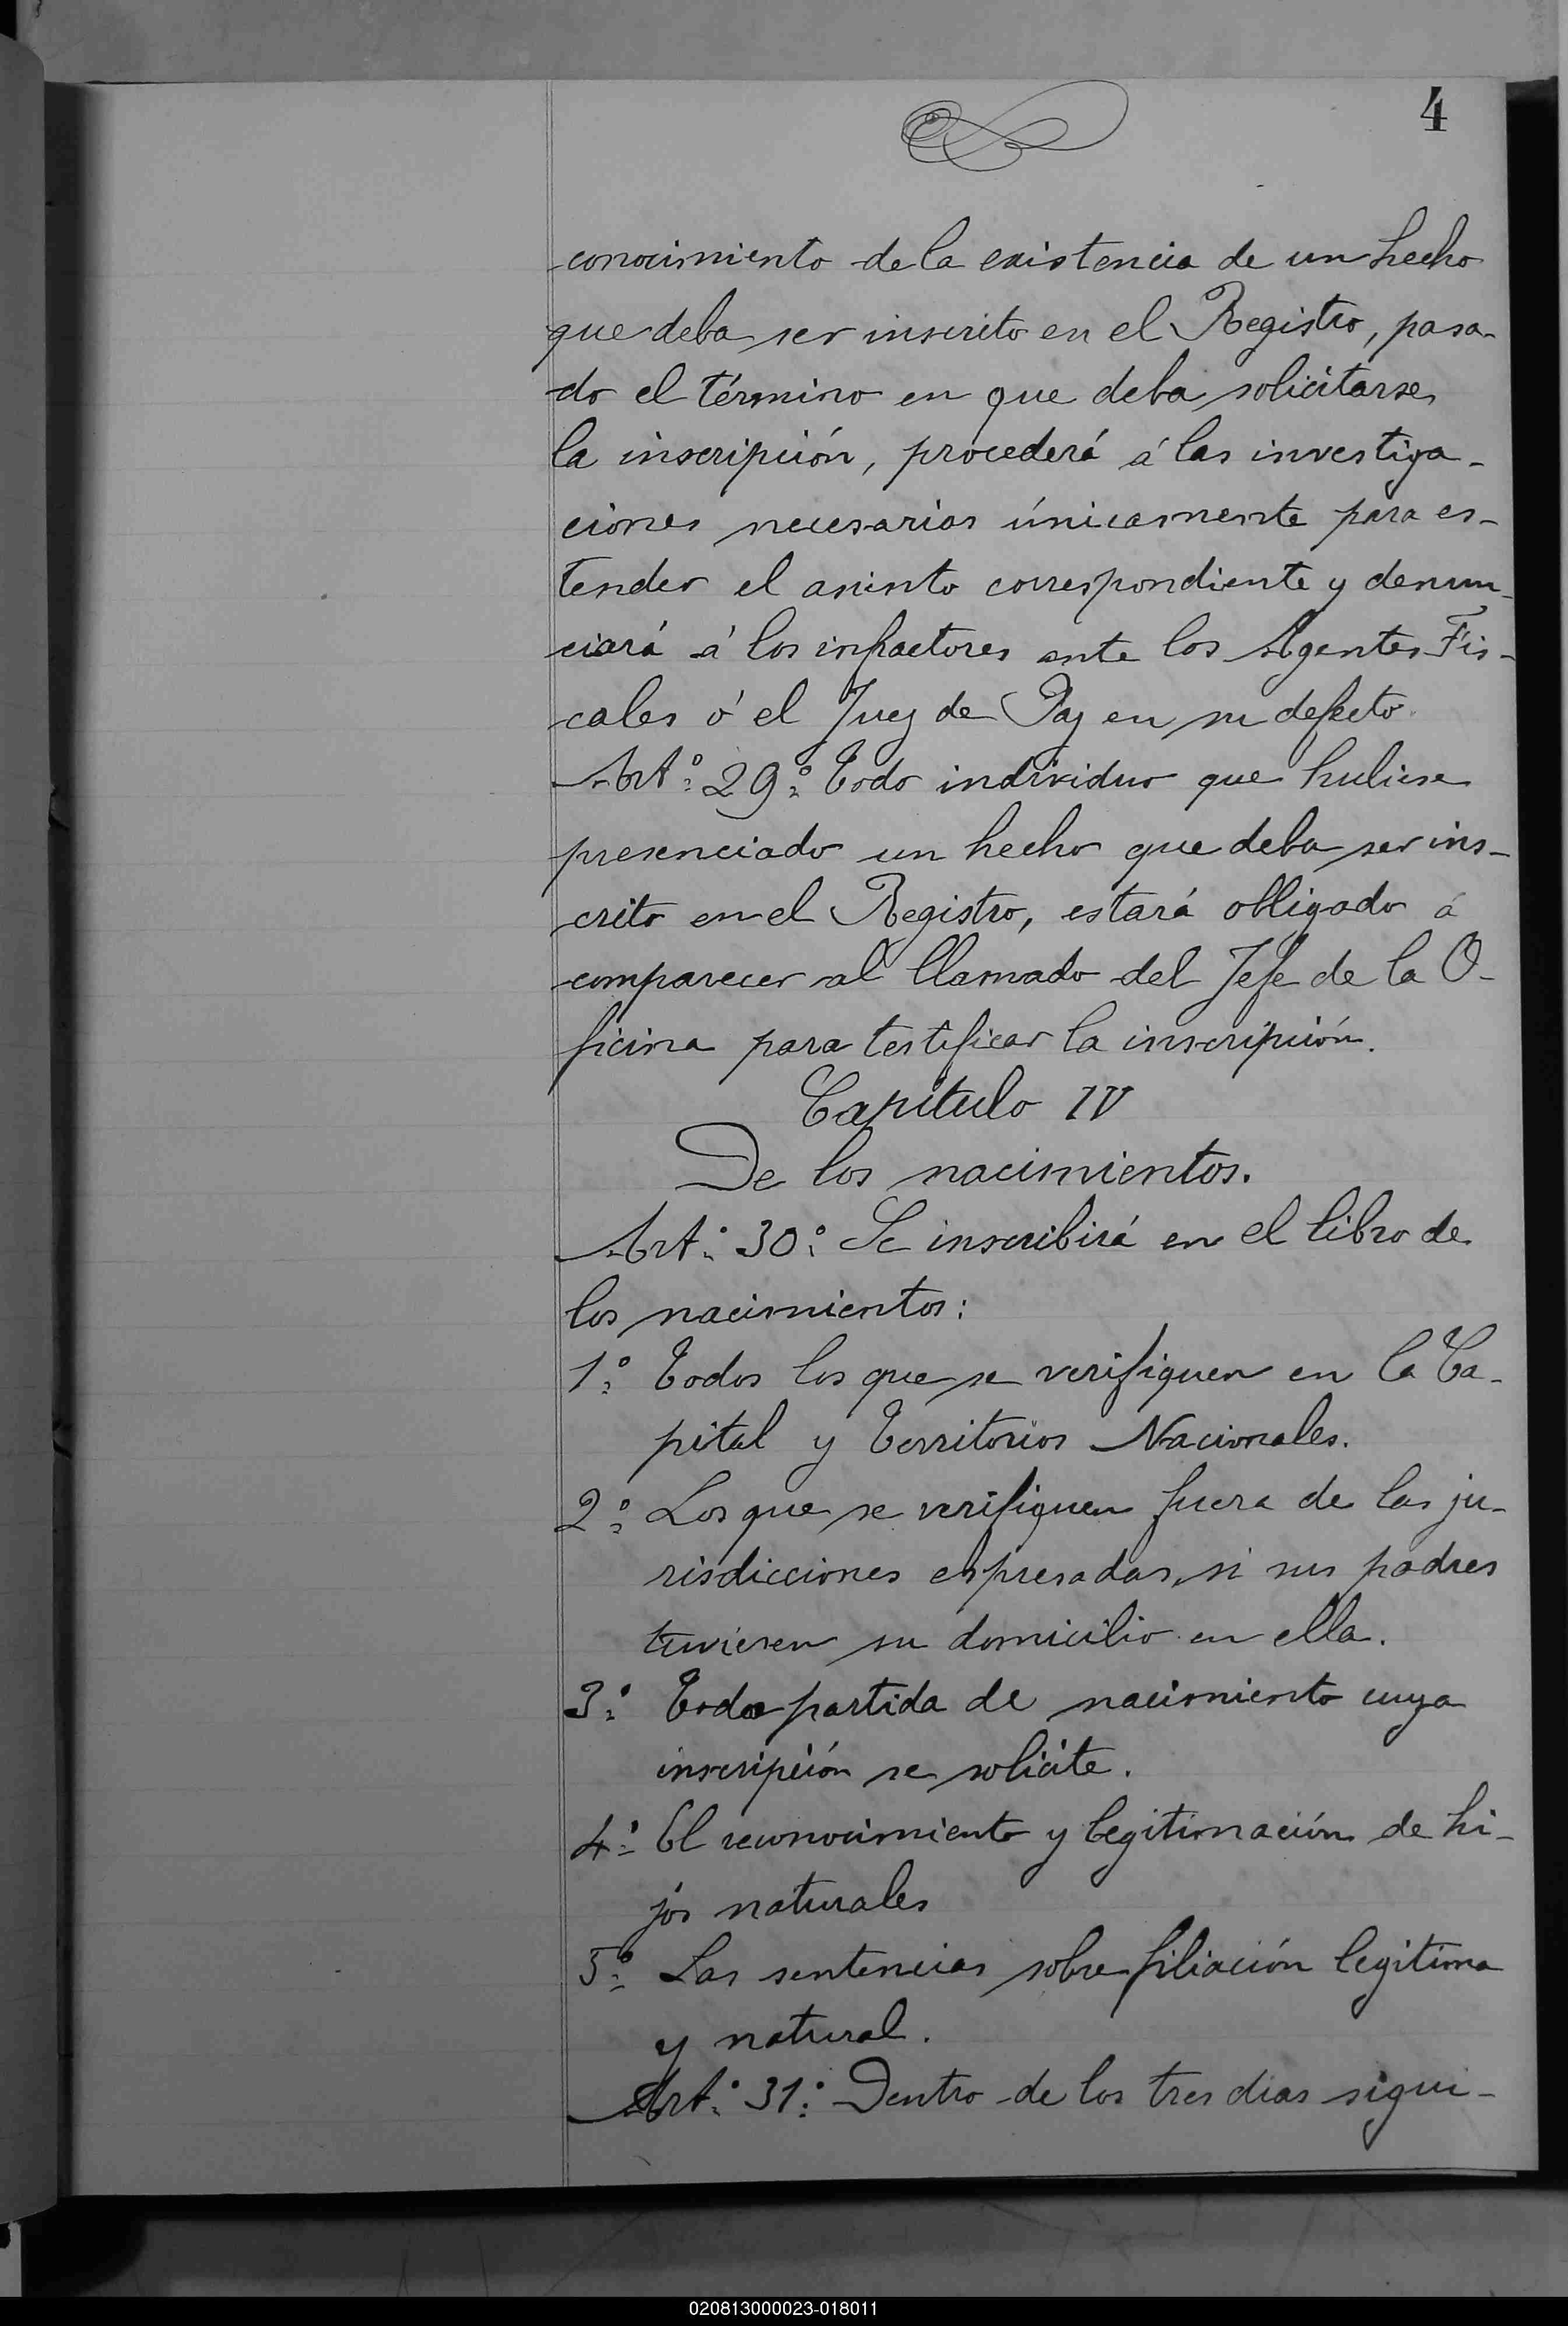 4
conocimiento de la existencia de un hecho
que deba ser inscrito en el Registro, pasa-
do el término en que deba solicitarse
la inscripción, procederá á las investiga-
ciones necesarias únicamente para es-
tender el asiento correspondiente y denun-
ciará á los infractores ante los Agentes Fis-
cales ó el Juez de Paz en su defecto.
Artº 29º Todo individuo que hubiese
presenciado un hecho que deba ser ins-
crito en el Registro, estará obligado á
comparecer al llamado del Jefe de la O-
ficina para testificar la inscripción.
Capítulo IV
De los nacimientos.
Artº 30º Se inscribirá en el libro de
los nacimientos:
1º Todos los que se verifiquen en la Ca-
pital y Territorios Nacionales.
2º Los que se verifiquen fuera de las ju-
risdicciones espresadas, si sus padres
tuvieren su domicilio en ella.
3º Toda partida de nacimiento cuya
inscripción se solicite.
4º El reconocimiento y legitimación de hi-
jos naturales
5º Las sentencias sobre filiación legítima
y natural.
Artº 31º Dentro de los tres dias sigui-
020813000023-018011